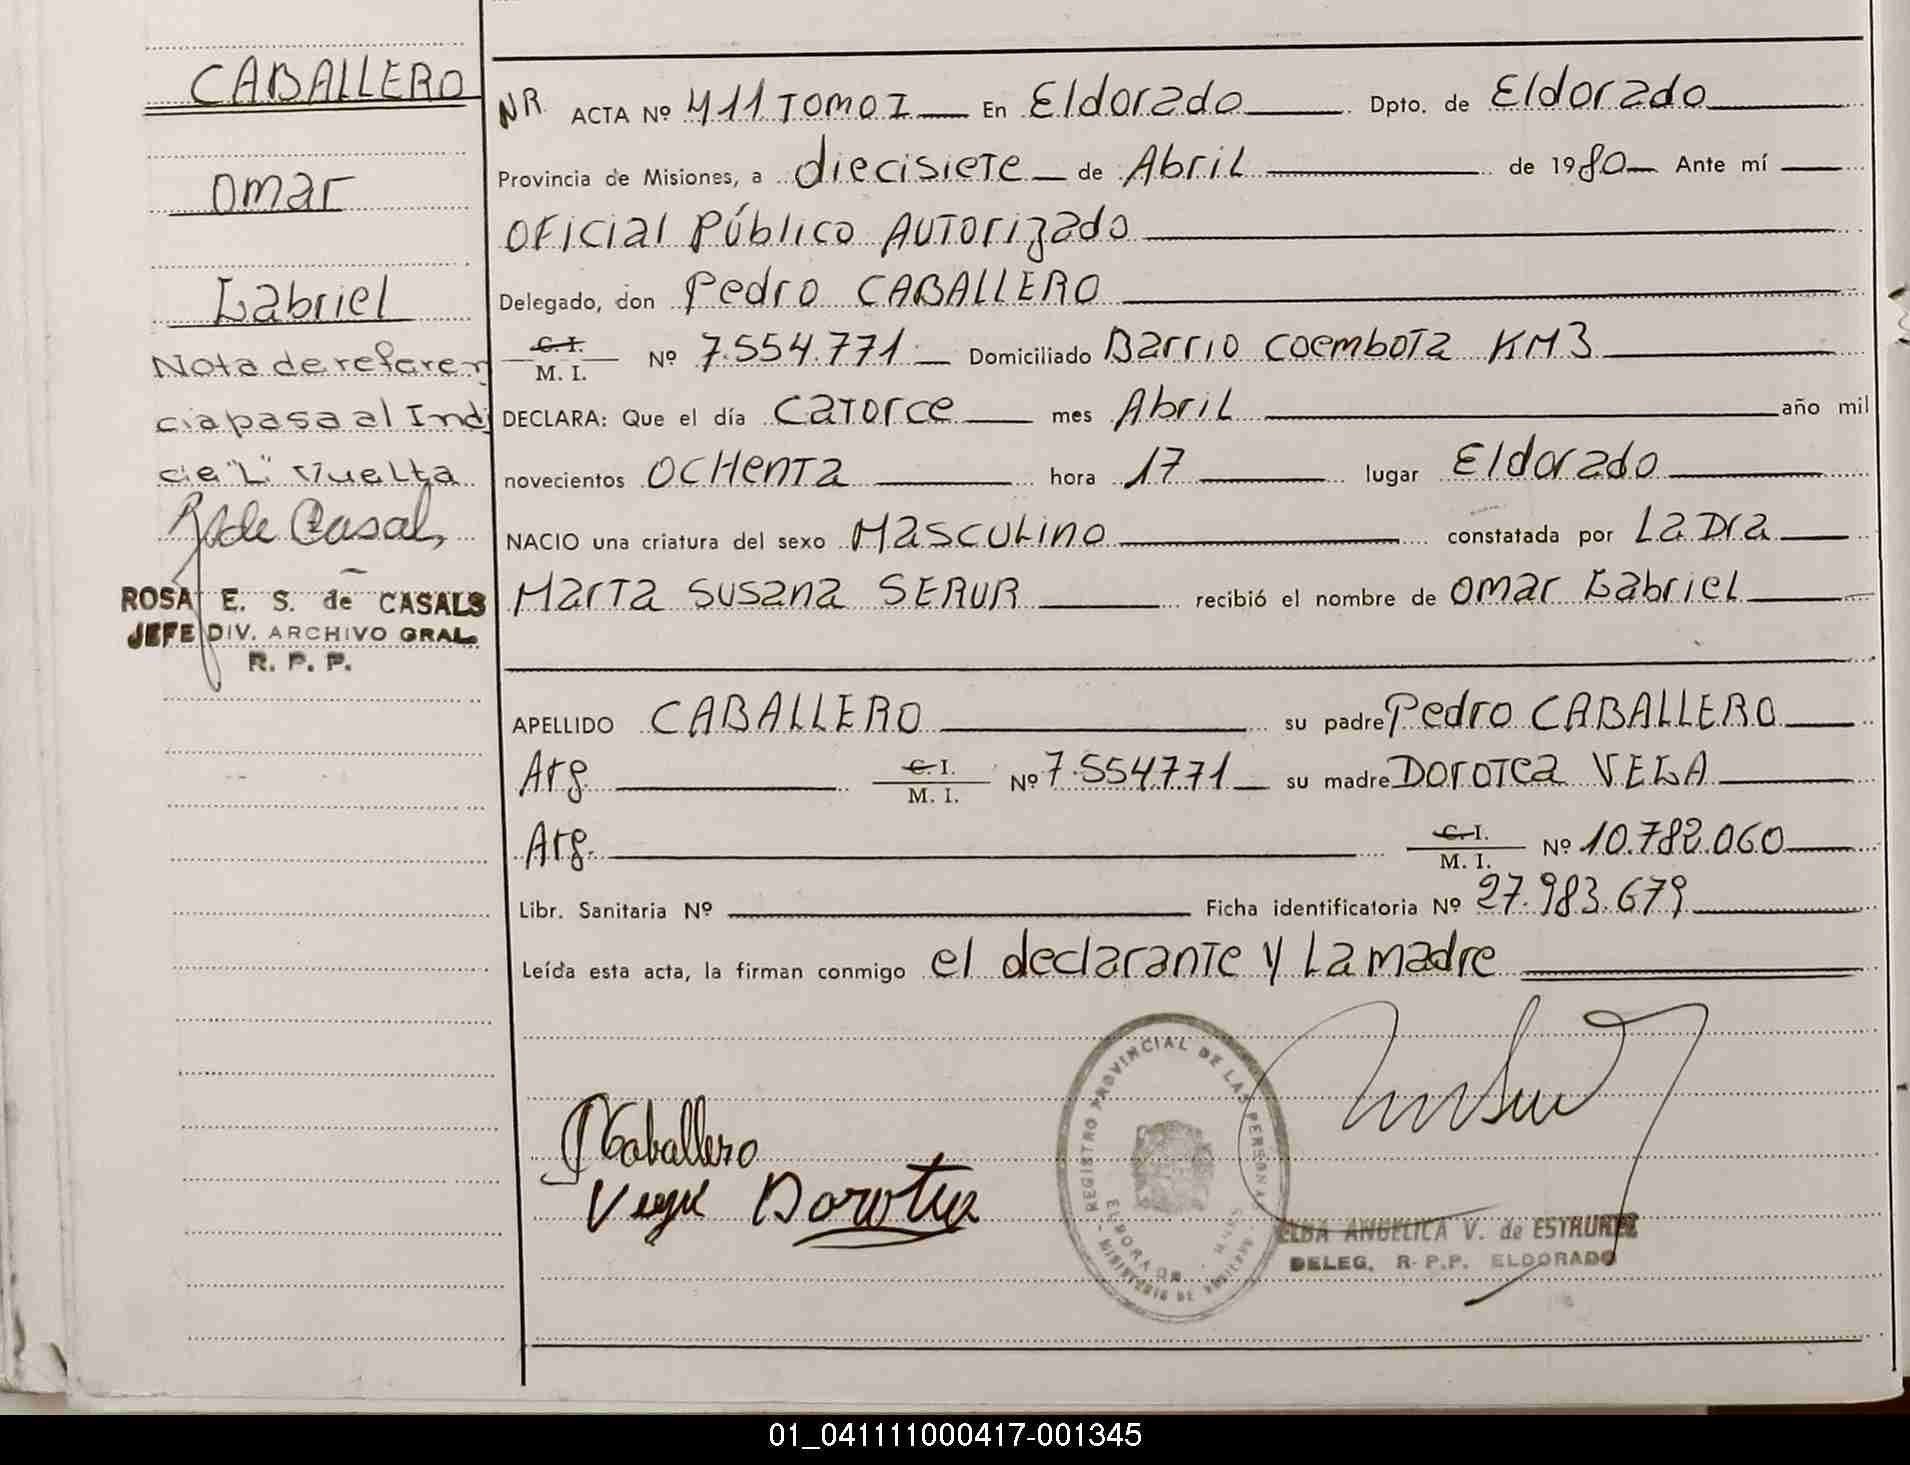 CABALLERO
Omar
Gabriel
Nota de referen
cia pasa al Indi
ce "L" Vuelta
R. S. de Casals
ROSA E. S. de CASALS
JEFE DIV. ARCHIVO GRAL.
R. P. P.
NR. ACTA Nº 411 TOMO I En Eldorado Dpto. de Eldorado
Provincia de Misiones, a diecisiete de Abril de 1980 Ante mí
Oficial Público Autorizado
Delegado, don Pedro CABALLERO
C. I. / M. I. Nº 7.554.771 Domiciliado Barrio Coembota KM3
DECLARA: Que el día catorce mes Abril año mil
novecientos OCHENTA hora 17 lugar Eldorado
NACIO una criatura del sexo Masculino constatada por La Dra
Marta Susana SERUR recibió el nombre de Omar Gabriel
APELLIDO CABALLERO su padre Pedro CABALLERO
Arg. C. I. / M. I. Nº 7.554.771 su madre Dorotea VEGA
Arg. C. I. / M. I. Nº 10.782.060
Libr. Sanitaria Nº Ficha identificatoria Nº 27.983.679
Leída esta acta, la firman conmigo el declarante y la madre
PCaballero
Vega Dorotea
REGISTRO PROVINCIAL DE LAS PERSONAS
ELDORADO
MINISTERIO DE
ELBA ANGELICA V. de ESTRUREZ
DELEG. R. P.P. ELDORADO
01_041111000417-001345